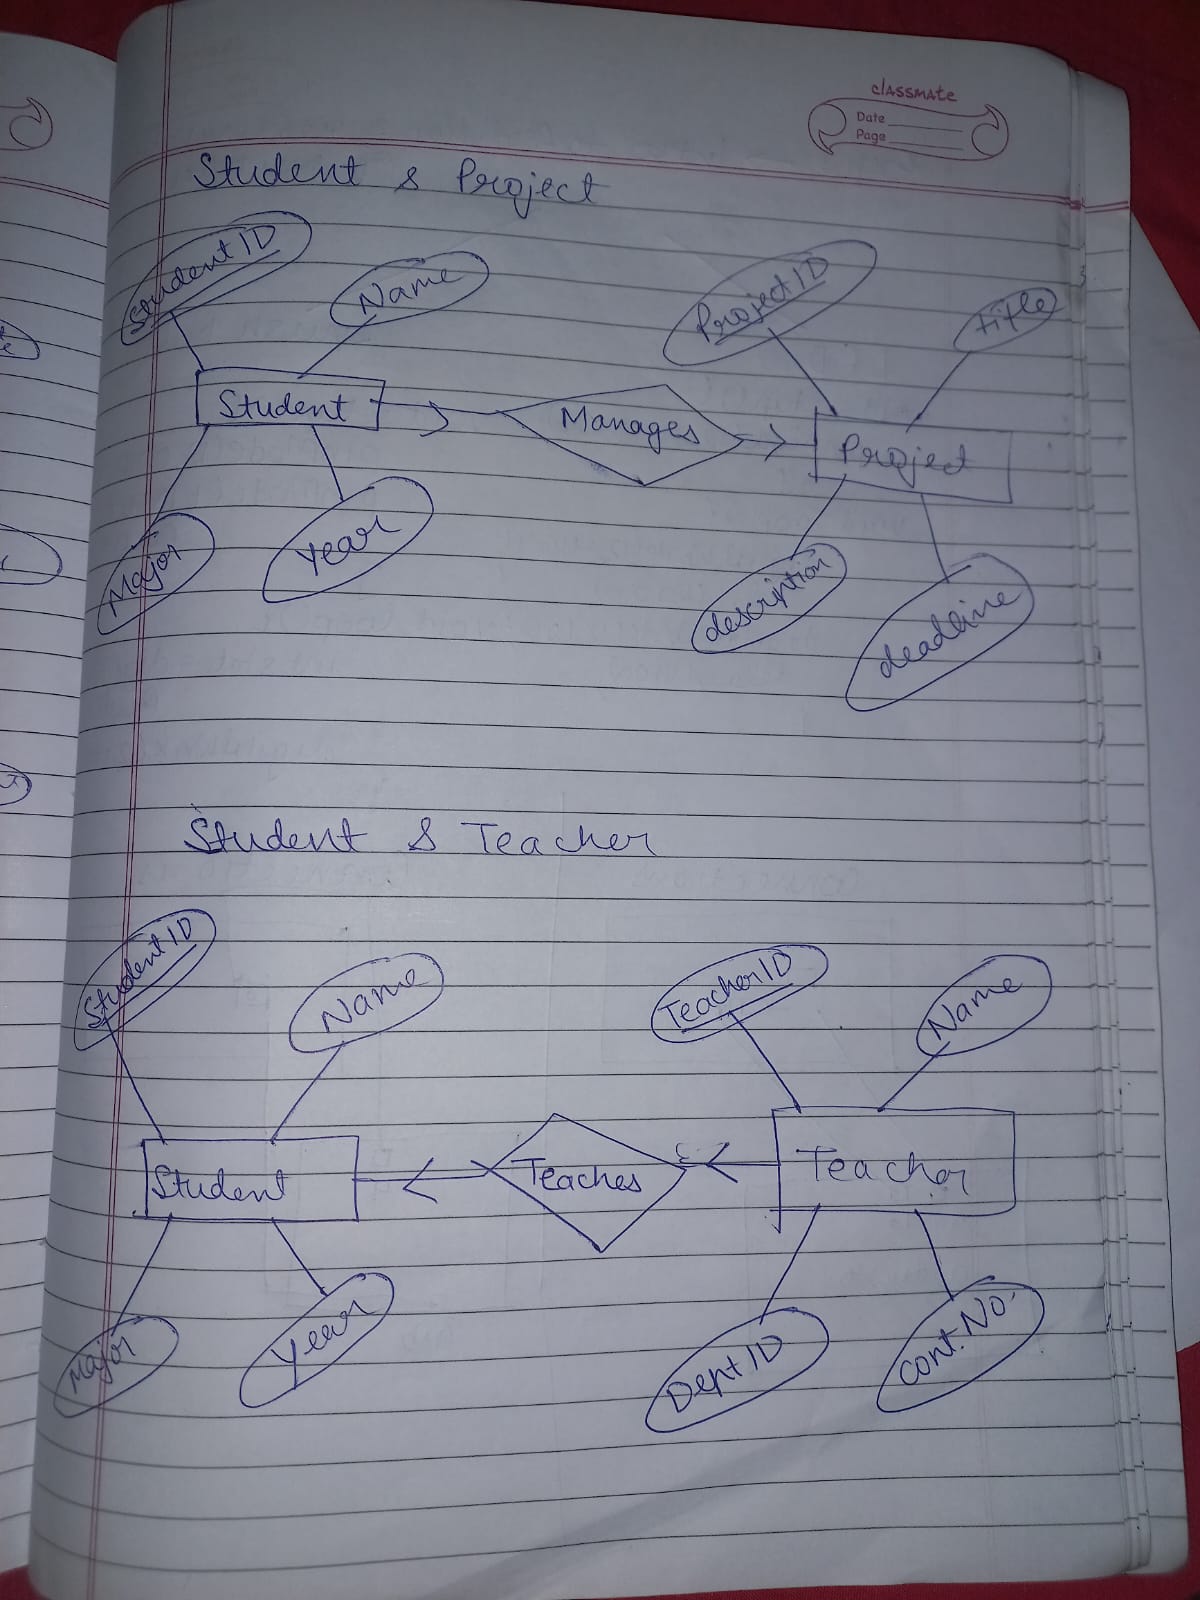 classmate
Date
Page
Student & Project
Student ID
Name
Project ID
title
Student
Manages
Project
Major
Year
description
deadline
Student & Teacher
Student ID
Name
Teacher ID
Name
Student
Teaches
Teacher
Major
Year
Dept ID
Cont. No.